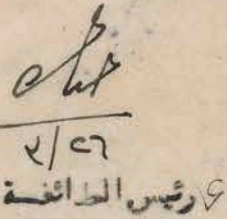 ٣/٢٦
ع رئيس الطائفة